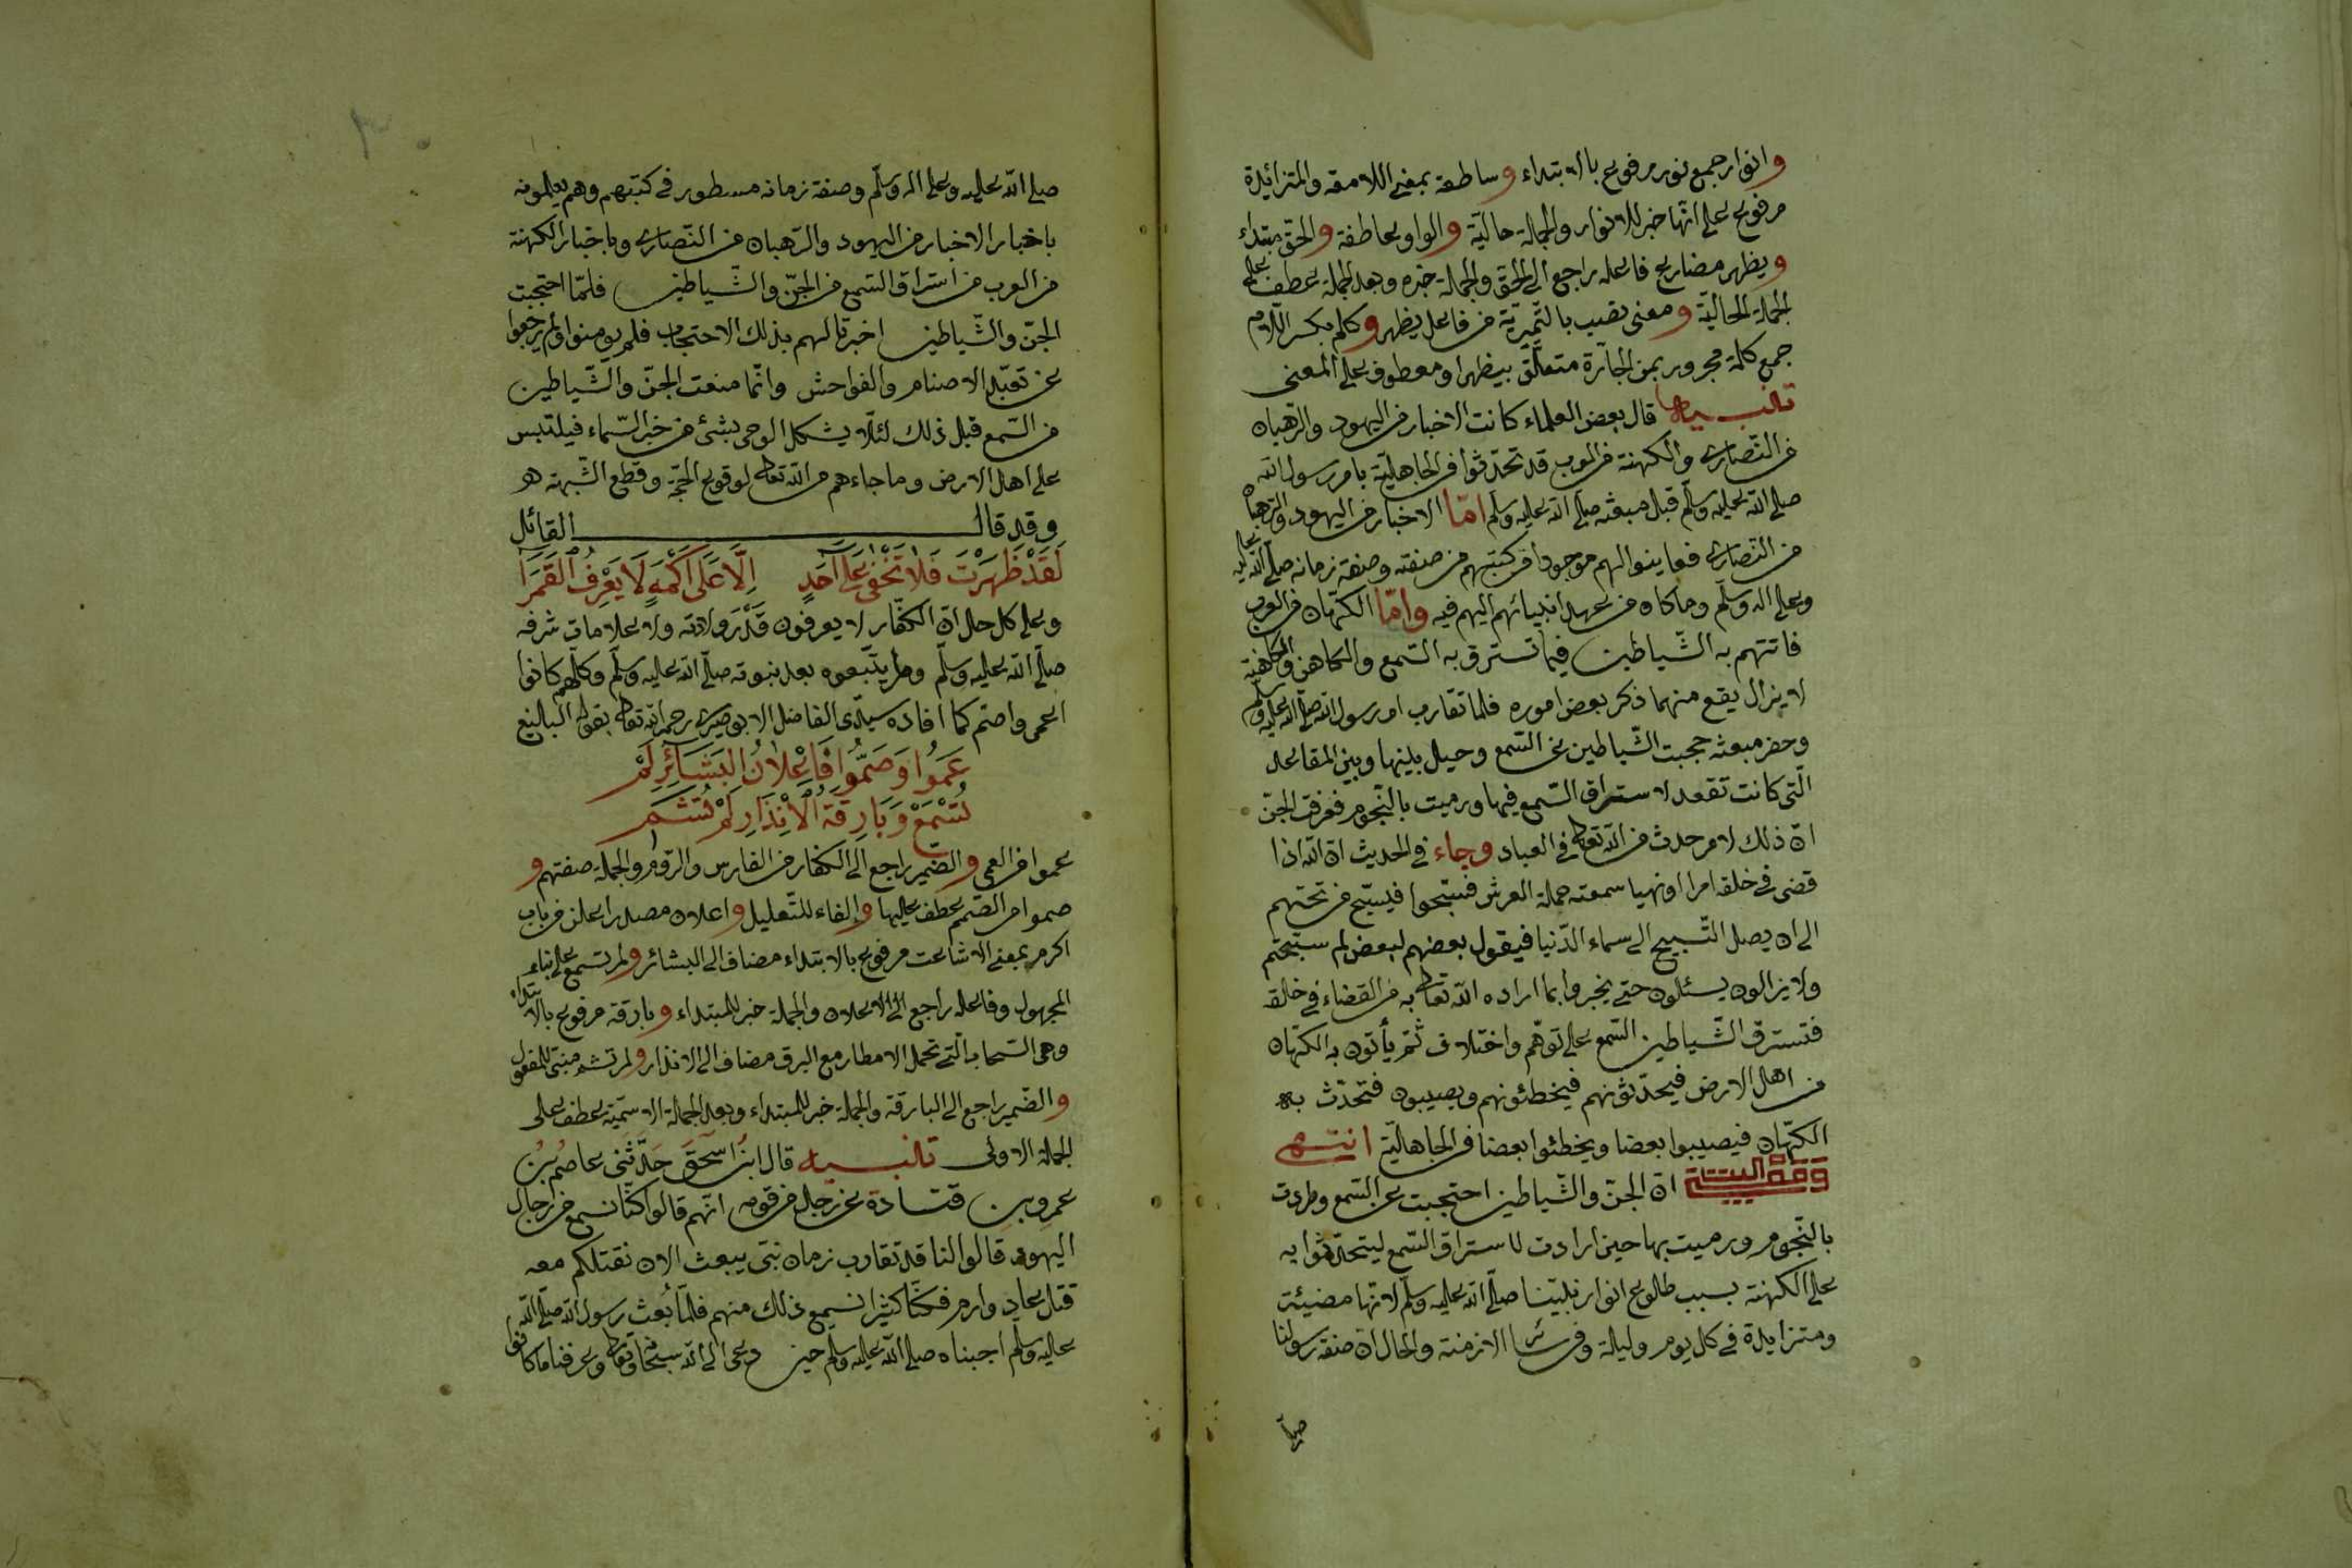 وانوار جمع نور مرفوع بالابتداء وساطعة بمعنى اللامعة والمتزائدة
مرفوع على انّها خبر للانوار والجملة حاليّة والواو عاطفة والحق مبتداء
ويظهر مضارع فاعله راجع الى الحق والجملة خبره وهذه الجملة عطف على
الجملة الحاليّة ومعنى نصب بالتّميزيّة من فاعل يظهر وكلم بكسر اللّام
جمع كلمة مجرور بمن الجارّة متعلّق بيظهر او معطوف على المعنى
تنبيه قال بعض العلماء كانت الاخبار من اليهود والرّهبان
من النّصارى والكهنة من العرب قد تحدّثوا فى الجاهليّة بامر رسول الله
صلى الله عليه وسلّم قبل مبعثه صلّى الله عليه وسلم امّا الاخبار من اليهود والرّهبان
من النّصارى فعاينوا لهم موجودا فى كتبهم من صفته وصفة زمانه صلّى الله عليه
وعلى اله وسلّم وما كان من عهد انبيائهم اليهم فيه وامّا الكهّان من العرب
فاتتهم به الشّياطين فيما تسترق به السّمع والكاهن والكاهنة
لا يزال يقع منهما ذكر بعض اموره فلما تقارب امر رسول الله صلّى الله عليه وسلّم
وحضر مبعثه حجبت الشّياطين عن السّمع وحيل بينها وبين المقاعد
الّتى كانت تقعد لاستراق السّمع فيها ورميت بالنّجوم فعرفت الجنّ
انّ ذلك لامر حدث من الله تعالى فى العباد وجاء فى الحديث ان الله اذا
قضى فى خلقه امرا او نهيا سمعته حملة العرش فسبّحوا فيسبّح من تحتهم
الى ان يصل التّسبيح الى سماء الدّنيا فيقول بعضهم لبعض لم سبّحتم
ولا يزالون يسئلون حتى يخبروا بما اراده الله تعالى به من القضاء فى خلقه
فتسترق الشّياطين السّمع على توهّم واختلاف ثمّ يأتون به الكهّان
من اهل الارض فيحدّثونهم فيخطئونهم ويصيبون فتحدّث به
الكهّان فيصيبوا بعضا ويخطئوا بعضا فى الجاهليّة انتهى
انّ الجنّ والشّياطين احتجبت عن السّمع وطردت
بالنّجوم ورميت بها حين ارادت لاستراق السّمع ليتحدّثوا به
على الكهنة بسبب طلوع انوار نبيّنا صلّى الله عليه وسلّم لانّها مضيئة
ومتزايدة فى كل يوم وليلة وفى سائر الازمنة والحال انّ صفة رسولنا
صلى
صلى الله عليه وعلى اله وسلّم وصفة زمانه مسطور فى كتبهم وهم يعلمونه
باخبار الاخبار من اليهود والرّهبان من النّصارى وباخبار الكهنة
من العرب من استراق السّمع من الجنّ والشّياطين فلمّا احتجبت
الجنّ والشّياطين اخبرتا لهم بذلك الاحتجاب فلم يومنوا ولم يرجعوا
عن تعبّد الاصنام والفواحش وانّما منعت الجنّ والشّياطين
من السّمع قبل ذلك لئلّا يشكل الوحى بشئ من خبر السّماء فيلتبس
على اهل الارض وما جاءهم من الله تعالى لوقوع الحجّة وقطع الشّبهة هو
وقد قال القائل
لَقَدْ ظَهَرْتَ فَلَا تَخْفَى عَلَى آحَدٍ اِلَّا عَلَى اَكْمَهٍ لَا يَعْرِفُ الْقَمَرَا
وعلى كل حال انّ الكفّار لا يعرفون قَدْرَ ولادته ولا علامات شرفه
صلّى الله عليه وسلّم ولم يتّبعوه بعد نبوته صلّى الله عليه وسلّم وكلّهم كانوا
اعمى واصم كما افاده سيّدى الفاضل الابوصيرى رحمه الله تعالى بقوله البالنع
عَمَوُا وَصَمُّوا فَاِعْلَانُ الْبَشَائِرِ لَمْ
تُسْمَعْ وَبَارِقَةُ الْاِنْذَارِ لَمْ تُشَمِ
عموا من العمى والضّمير راجع الى الكفار من الفارس والرّوم والجملة صفتهم و
صموا من الصّمم عطف عليها والفاء للتّعليل واعلان مصدر اعلن من باب
اكرم بمعنى الاشاعت مرفوع بالابتداء مضاف الى البشائر ولم تسمع على بناء
المجهول وفاعله راجع الى الاعلان والجملة خبر للمبتداء وبارقة مرفوع بالابتداء
وهى السّحاب الّتى تحمل الامطار مع البرق مضاف الى الانذار ولم تشم مبنى للمفعول
والضّمير راجع الى البارقة والجملة خبر للمبتداء وهذه الجملة الاسميّة عطف على
الجملة الاولى تنبيه قال ابنُ اسحق حَدَّثنى عاصم بُن
عمرو بن قتادة عن رجل من قومه انّهم قالوا كنّا نسمع من رجال
اليهود قالوا لنا قد تقارب زمان نبى يبعث الان نقتلكم معه
قتل عاد وارم فكنّا كثيرا نسمع ذلك منهم فلمّا بُعث رسول الله صلّى الله
عليه وسلّم اجبناه صلى الله عليه وسلم حين دعى الى الله سبحانه وتعالى وعرفنا ما كانوا